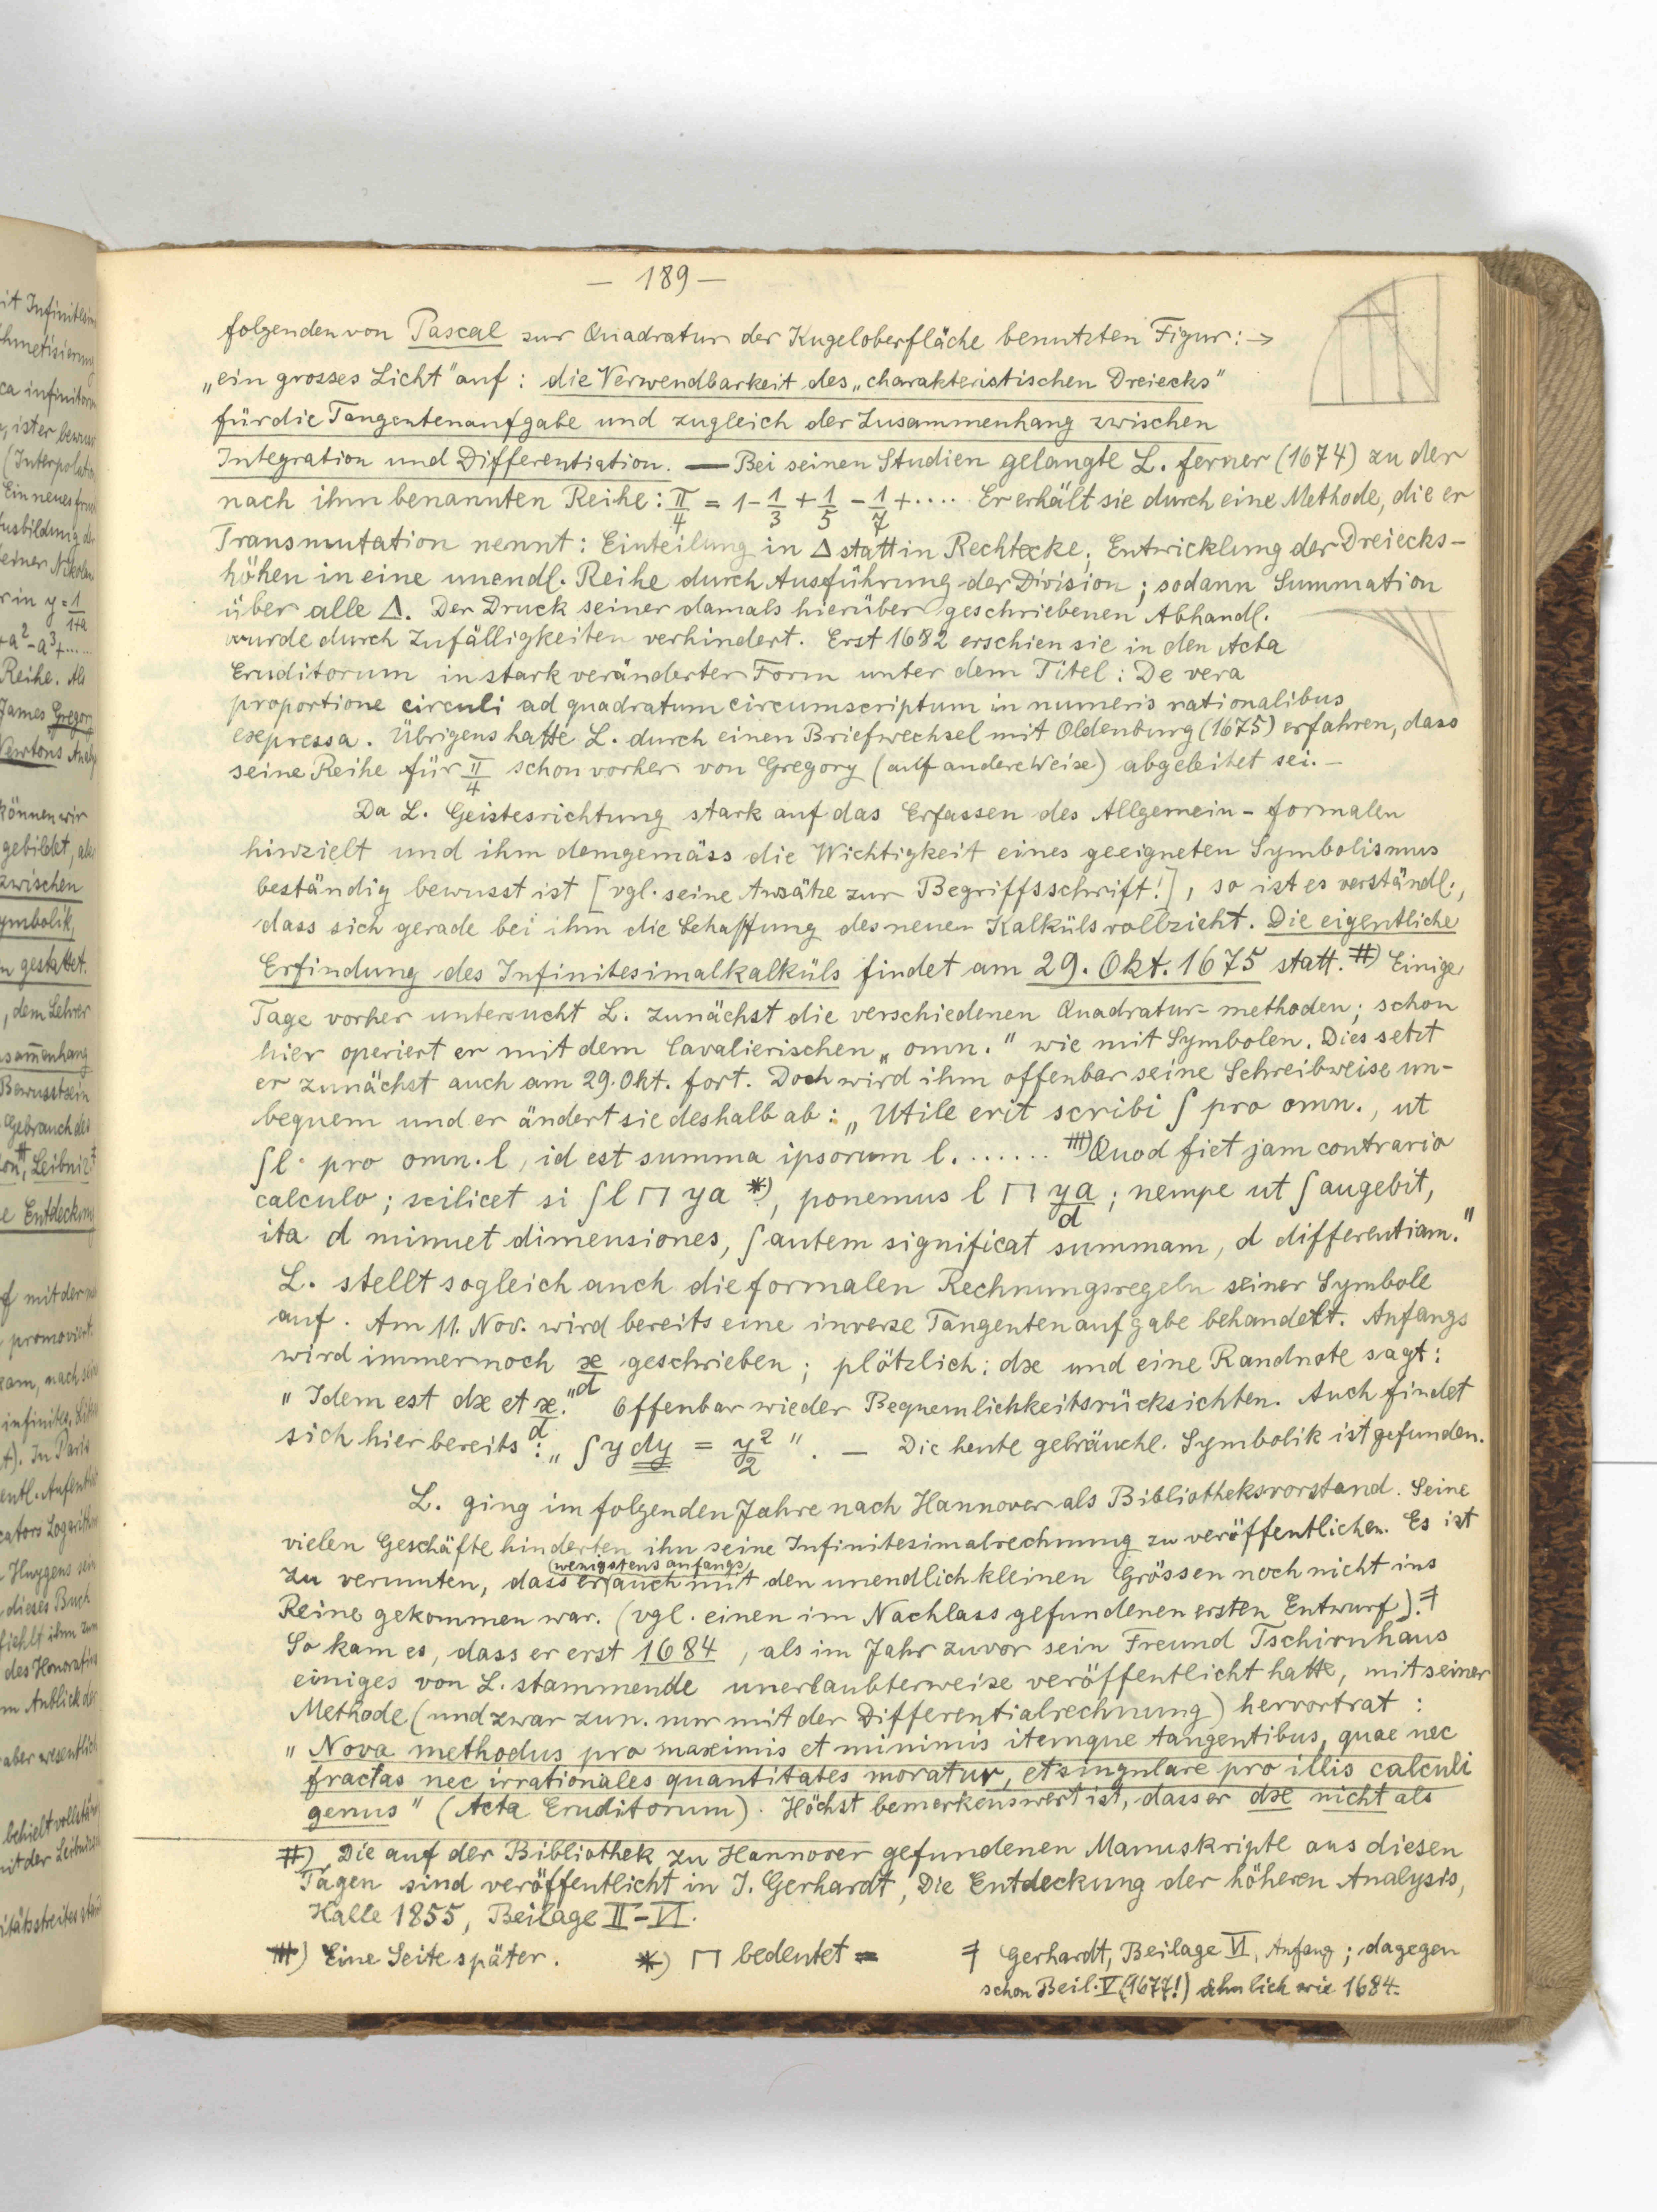 — 189 —
folgenden von Pascal zur Quadratur der Kugeloberfläche benutzten Figur: →
„ein grosses Licht" auf: die Verwendbarkeit des „charakteristischen Dreiecks"
für die Tangentenaufgabe und zugleich der Zusammenhang zwischen
Integration und Differentiation. — Bei seinen Studien gelangte L. ferner (1674) zu der
nach ihm benannten Reihe: π/4 = 1 - 1/3 + 1/5 - 1/7 + .... Er erhält sie durch eine Methode, die er
Transmutation nennt: Einteilung in Δ statt in Rechtecke, Entwicklung der Dreiecks-
höhen in eine unendl. Reihe durch Ausführung der Division; sodann Summation
über alle Δ. Der Druck seiner damals hierüber geschriebenen Abhandl.
wurde durch Zufälligkeiten verhindert. Erst 1682 erschien sie in den Acta
Eruditorum in stark veränderter Form unter dem Titel: De vera
proportione circuli ad quadratum circumscriptum in numeris rationalibus
expressa. Übrigens hatte L. durch einen Briefwechsel mit Oldenburg (1675) erfahren, dass
seine Reihe für π/4 schon vorher von Gregory (auf andere Weise) abgeleitet sei. —
Da L. Geistesrichtung stark auf das Erfassen des Allgemein-formalen
hinzielt und ihm demgemäss die Wichtigkeit eines geeigneten Symbolismus
beständig bewusst ist [vgl. seine Ansätze zur Begriffsschrift!], so ist es verständl.,
dass sich gerade bei ihm die Schaffung des neuen Kalküls vollzieht. Die eigentliche
Erfindung des Infinitesimalkalküls findet am 29. Okt. 1675 statt. #) Einige
Tage vorher untersucht L. zunächst die verschiedenen Quadratur-methoden; schon
hier operiert er mit dem Cavalierischen „omn." wie mit Symbolen. Dies setzt
er zunächst auch am 29. Okt. fort. Doch wird ihm offenbar seine Schreibweise un-
bequem und er ändert sie deshalb ab: „Utile erit scribi ∫ pro omn., ut
∫l pro omn. l, id est summa ipsorum l. ...... ⧻) Quod fiet jam contrario
calculo; scilicet si ∫l ⊓ ya *), ponemus l ⊓ ya/d ; nempe ut ∫ augebit,
ita d minuet dimensiones, ∫ autem significat summam, d differentiam."
L. stellt sogleich auch die formalen Rechnungsregeln seiner Symbole
auf. Am 11. Nov. wird bereits eine inverse Tangentenaufgabe behandelt. Anfangs
wird immer noch x/d geschrieben; plötzlich: dx und eine Randnote sagt:
„Idem est dx et x/d." Offenbar wieder Bequemlichkeitsrücksichten. Auch findet
sich hier bereits: „∫ y dy = y²/2". — Die heute gebräuchl. Symbolik ist gefunden.
L. ging im folgenden Jahre nach Hannover als Bibliotheksvorstand. Seine
vielen Geschäfte hinderten ihn seine Infinitesimalrechnung zu veröffentlichen. Es ist
(wenigstens anfangs)
zu vermuten, dass er auch mit den unendlich kleinen Grössen noch nicht ins
Reine gekommen war. (vgl. einen im Nachlass gefundenen ersten Entwurf). ≠
So kam es, dass er erst 1684, als im Jahr zuvor sein Freund Tschirnhaus
einiges von L. stammende unerlaubterweise veröffentlicht hatte, mit seiner
Methode (und zwar zun. nur mit der Differentialrechnung) hervortrat:
„Nova methodus pro maximis et minimis itemque tangentibus, quae nec
fractas nec irrationales quantitates moratur, et singulare pro illis calculi
genus" (Acta Eruditorum). Höchst bemerkenswert ist, dass er dx nicht als
#) Die auf der Bibliothek zu Hannover gefundenen Manuskripte aus diesen
Tagen sind veröffentlicht in J. Gerhardt, Die Entdeckung der höheren Analysis,
Halle 1855, Beilage II-VI.
⧻) Eine Seite später. *) ⊓ bedeutet =
≠ Gerhardt, Beilage VI, Anfang; dagegen
schon Beil. V (1677!) ähnlich wie 1684.